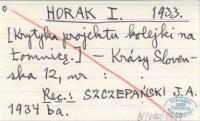 HORAK I. 1933.
[Krytyka projektu kolejki na
Łomnicę.] : — Krásy Sloven-
ska 12, nr :
Rec.: SZCZEPAŃSKI J.A.
1934 ba.